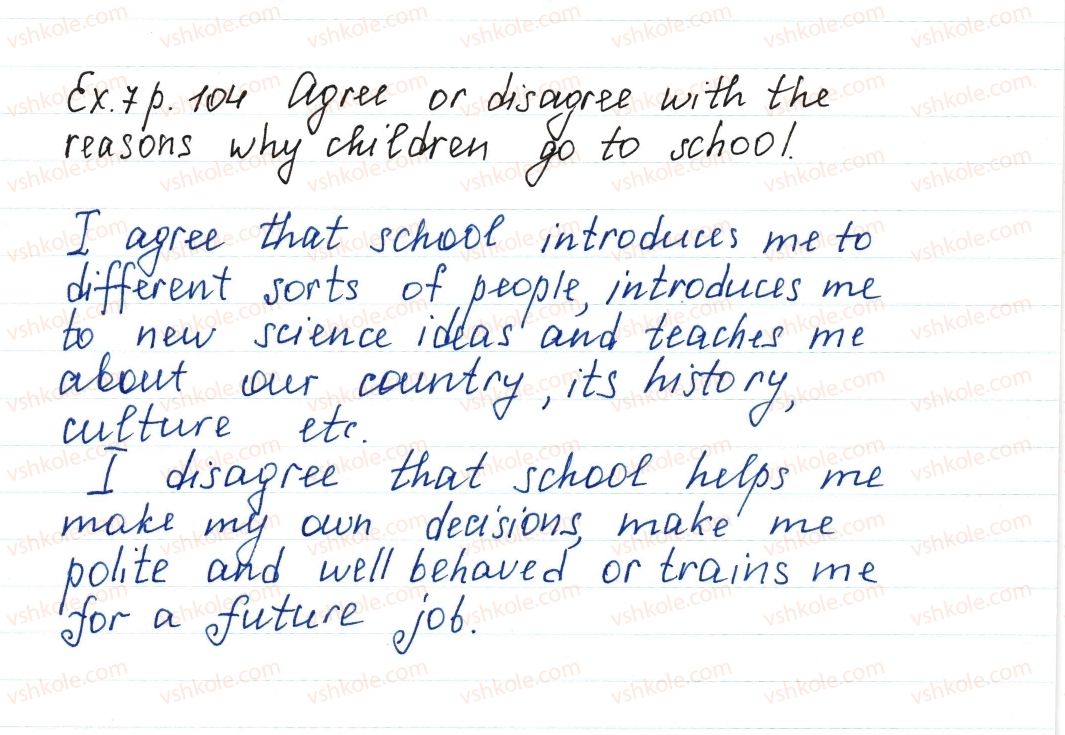 Ex. 7 p. 104 Agree or disagree with the
reasons why children go to school.
I agree that school introduces me to
different sorts of people, introduces me
to new science ideas and teaches me
about our country, its history,
culture etc.
I disagree that school helps me
make my own decisions, make me
polite and well behaved or trains me
for a future job.
vshkole.com